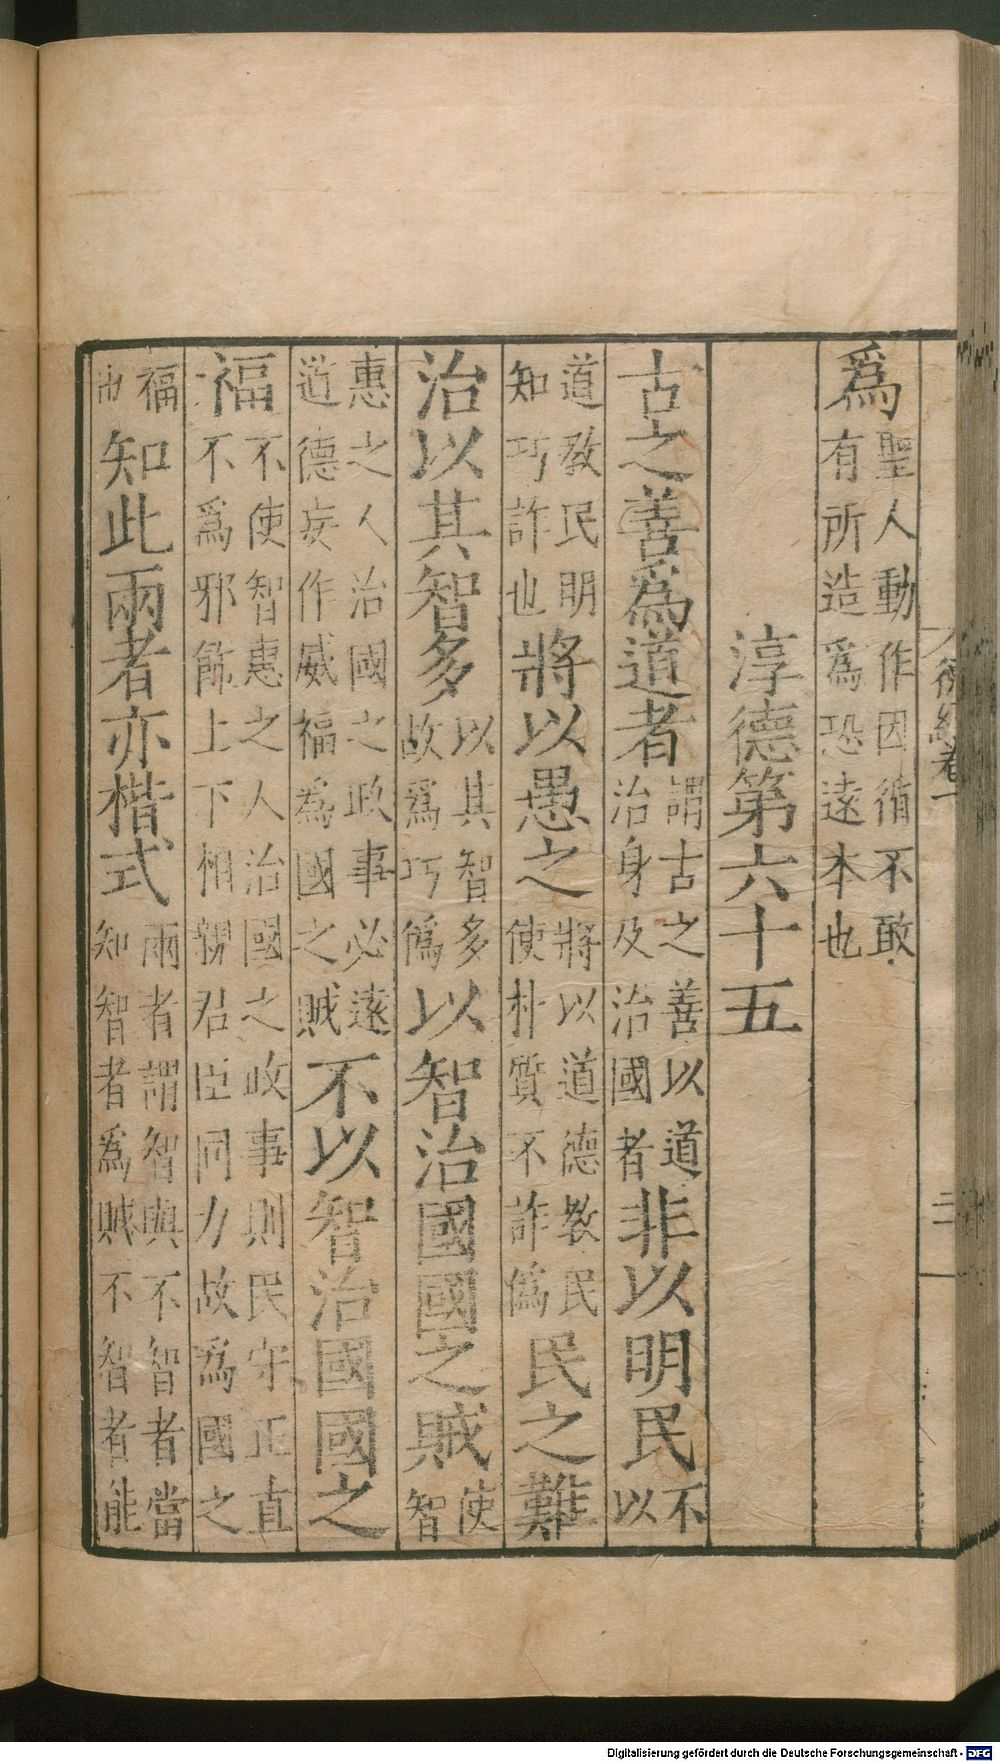 爲聖人動作因循不敢有所造爲恐遠本也
淳德第六十五
古之善爲道者謂古之善以道治身及治國者非以明民不以
道教民明知巧詐也將以愚之將以道德教民使朴質不詐僞民之難
治以其智多以其智多故爲巧僞以智治國國之賊使智
惠之人治國之政事必遠道德妄作威福爲國之賊不以智治國國之
福不使智惠之人治國之政事則民守正直不爲邪飾上下相親君臣同力故爲國之
福也知此兩者亦楷式兩者謂智與不智者當知智者爲賊不智者能
德經卷下
二
Digitalisierung gefördert durch die Deutsche Forschungsgemeinschaft - DFG